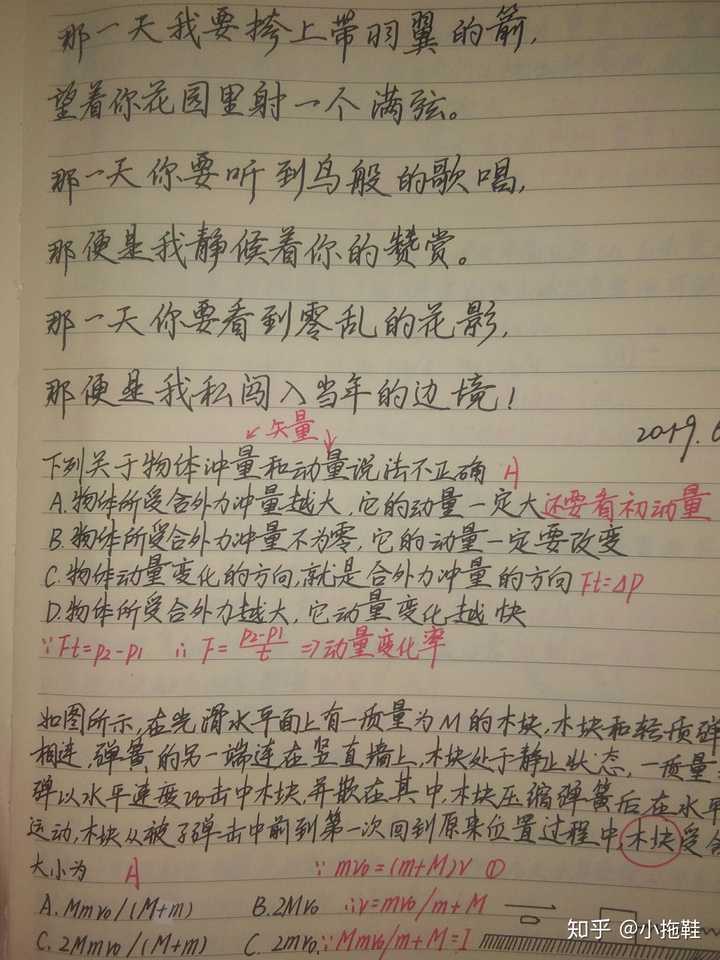 那一天我要挎上带羽翼的箭,
望着你花园里射一个满弦。
那一天你要听到鸟般的歌唱,
那便是我静候着你的赞赏。
那一天你要看到零乱的花影,
那便是我私闯入当年的边境!
2019.6
矢量
下列关于物体冲量和动量说法不正确 A
A.物体所受合外力冲量越大,它的动量一定大 还要看初动量
B.物体所受合外力冲量不为零,它的动量一定要改变
C.物体动量变化的方向,就是合外力冲量的方向 Ft=Δp
D.物体所受合外力越大,它动量变化越快
∵Ft=p2-p1 ∴F=(p2-p1)/t ⇒动量变化率
如图所示,在光滑水平面上有一质量为M的木块,木块和轻质弹
相连,弹簧的另一端连在竖直墙上,木块处于静止状态,一质量
弹以水平速度v0击中木块,并嵌在其中,木块压缩弹簧后在水平
运动,木块从被子弹击中前到第一次回到原来位置过程中,木块受合
大小为 A ∵mv0=(m+M)v ①
A.Mmv0/(M+m) B.2Mv0 ∴v=mv0/m+M
C.2Mmv0/(M+m) C.2mv0 ∵Mmv0/m+M=I
知乎 @小拖鞋